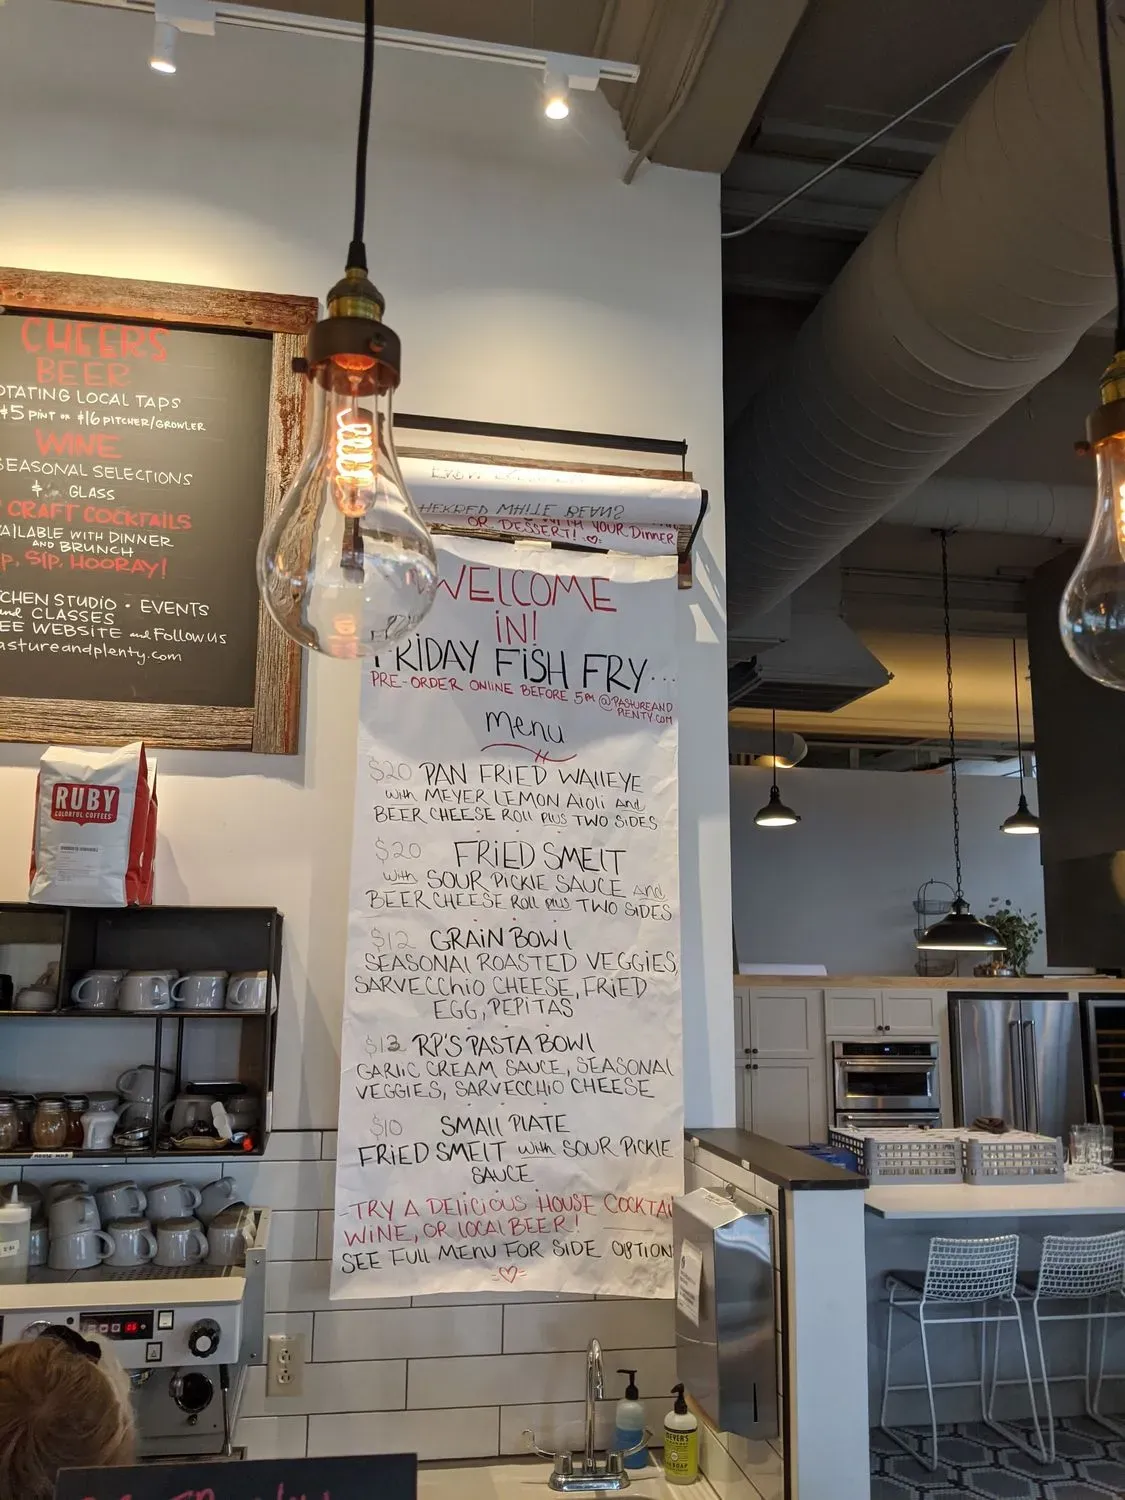 CHEERS
BEER
OTATING LOCAL TAPS
$5 PINT OR $16 PITCHER/GROWLER
WINE
SEASONAL SELECTIONS
GLASS
CRAFT COCKTAILS
AILABLE WITH DINNER
AND BRUNCH
P, SIP, HOORAY!
CHEN STUDIO • EVENTS
and CLASSES
EE WEBSITE and FOLLOW US
astureandplenty.com
OR DESSERT! WITH YOUR DINNER
WELCOME
IN!
FRIDAY FISH FRY...
PRE-ORDER ONLINE BEFORE 5PM @PASTUREAND
PLENTY.COM
Menu
$20 PAN FRIED WALLEYE
with MEYER LEMON AIOLI and
BEER CHEESE ROLL PLUS TWO SIDES
$20 FRIED SMELT
with SOUR PICKLE SAUCE and
BEER CHEESE ROLL PLUS TWO SIDES
$12 GRAIN BOWL
SEASONAL ROASTED VEGGIES,
SARVECCHIO CHEESE, FRIED
EGG, PEPITAS
$13 RP'S PASTA BOWL
GARLIC CREAM SAUCE, SEASONAL
VEGGIES, SARVECCHIO CHEESE
$10 SMALL PLATE
FRIED SMELT with SOUR PICKLE
SAUCE
TRY A DELICIOUS HOUSE COCKTAI
WINE, OR LOCAL BEER!
SEE FULL MENU FOR SIDE OPTION
RUBY
COLORFUL COFFEES